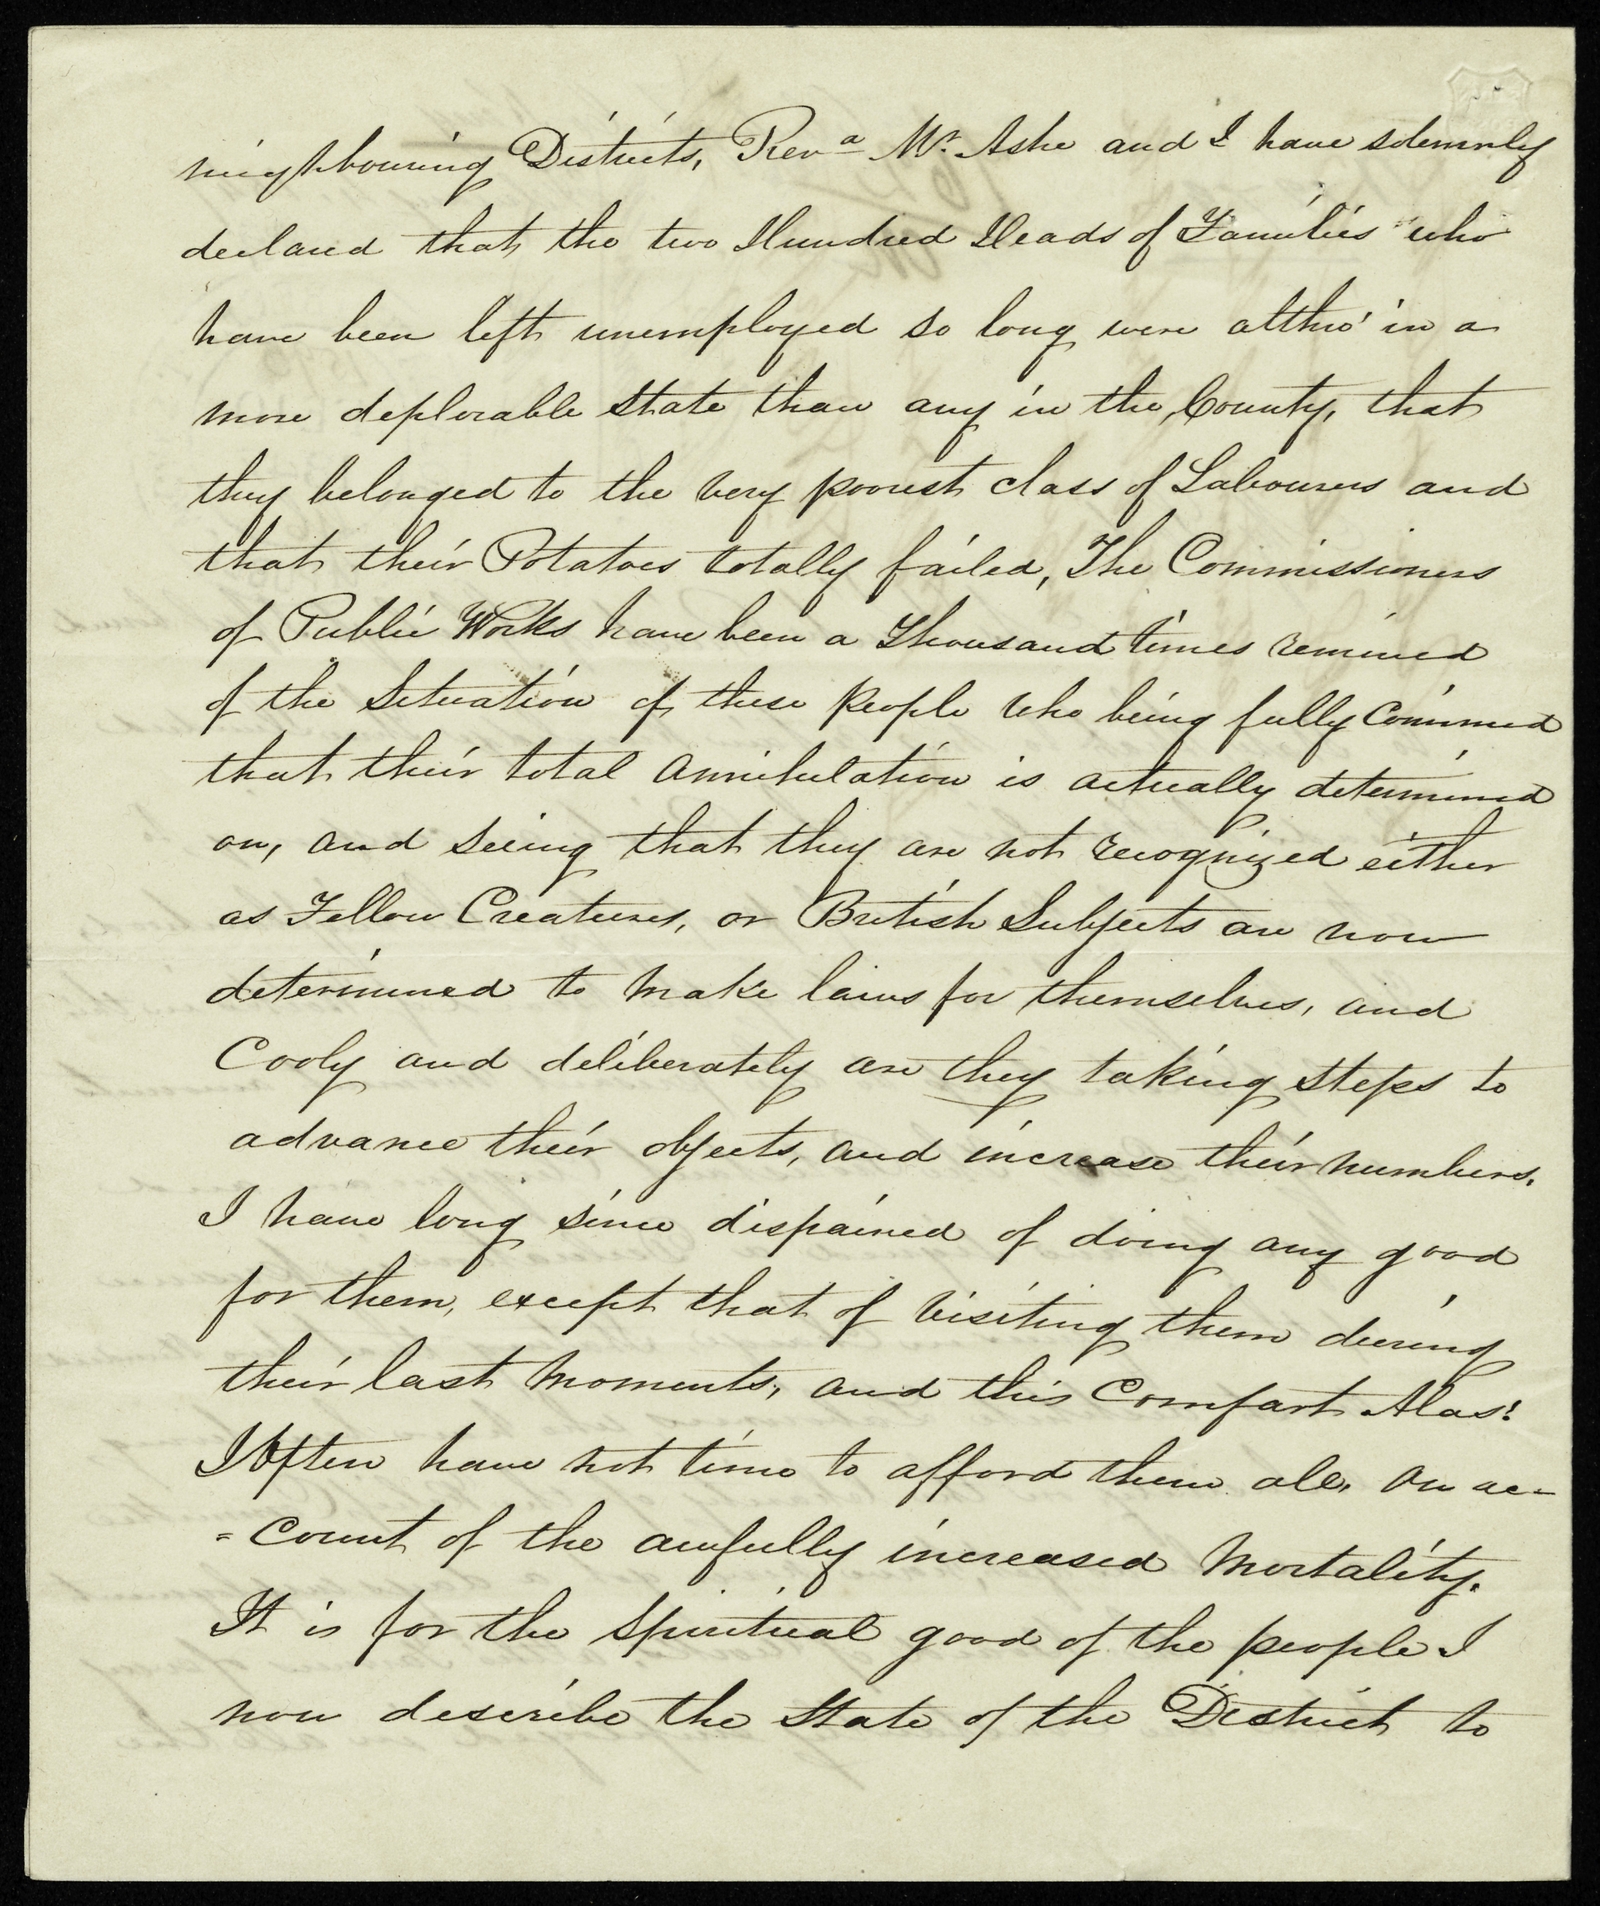 neighbouring Districts, Revd Mr. Ashe and I have solemnly
declared that the two Hundred Heads of Families who
have been left unemployed so long were altho' in a
more deplorable State than any in the County, that
they belonged to the very poorest class of Labourers and
that their Potatoes totally failed, The Commissioners
of Public Works have been a Thousand times remined
of the Situation of these people who being fully Convinced
that their total annihulation is actually determined
on, and seeing that they are not recognized either
as Fellow Creatures, or British Subjects are now
determined to make laws for themselves, and
Cooly and deliberately are they taking steps to
advance their objects, and increase their numbers.
I have long since dispaired of doing any good
for them, except that of visiting them during
their last moments, and this Comfort Alas!
I Often have not time to afford them all, on ac-
=count of the awfully increased Mortality.
It is for the Spiritual good of the people I
now describe the State of the District to